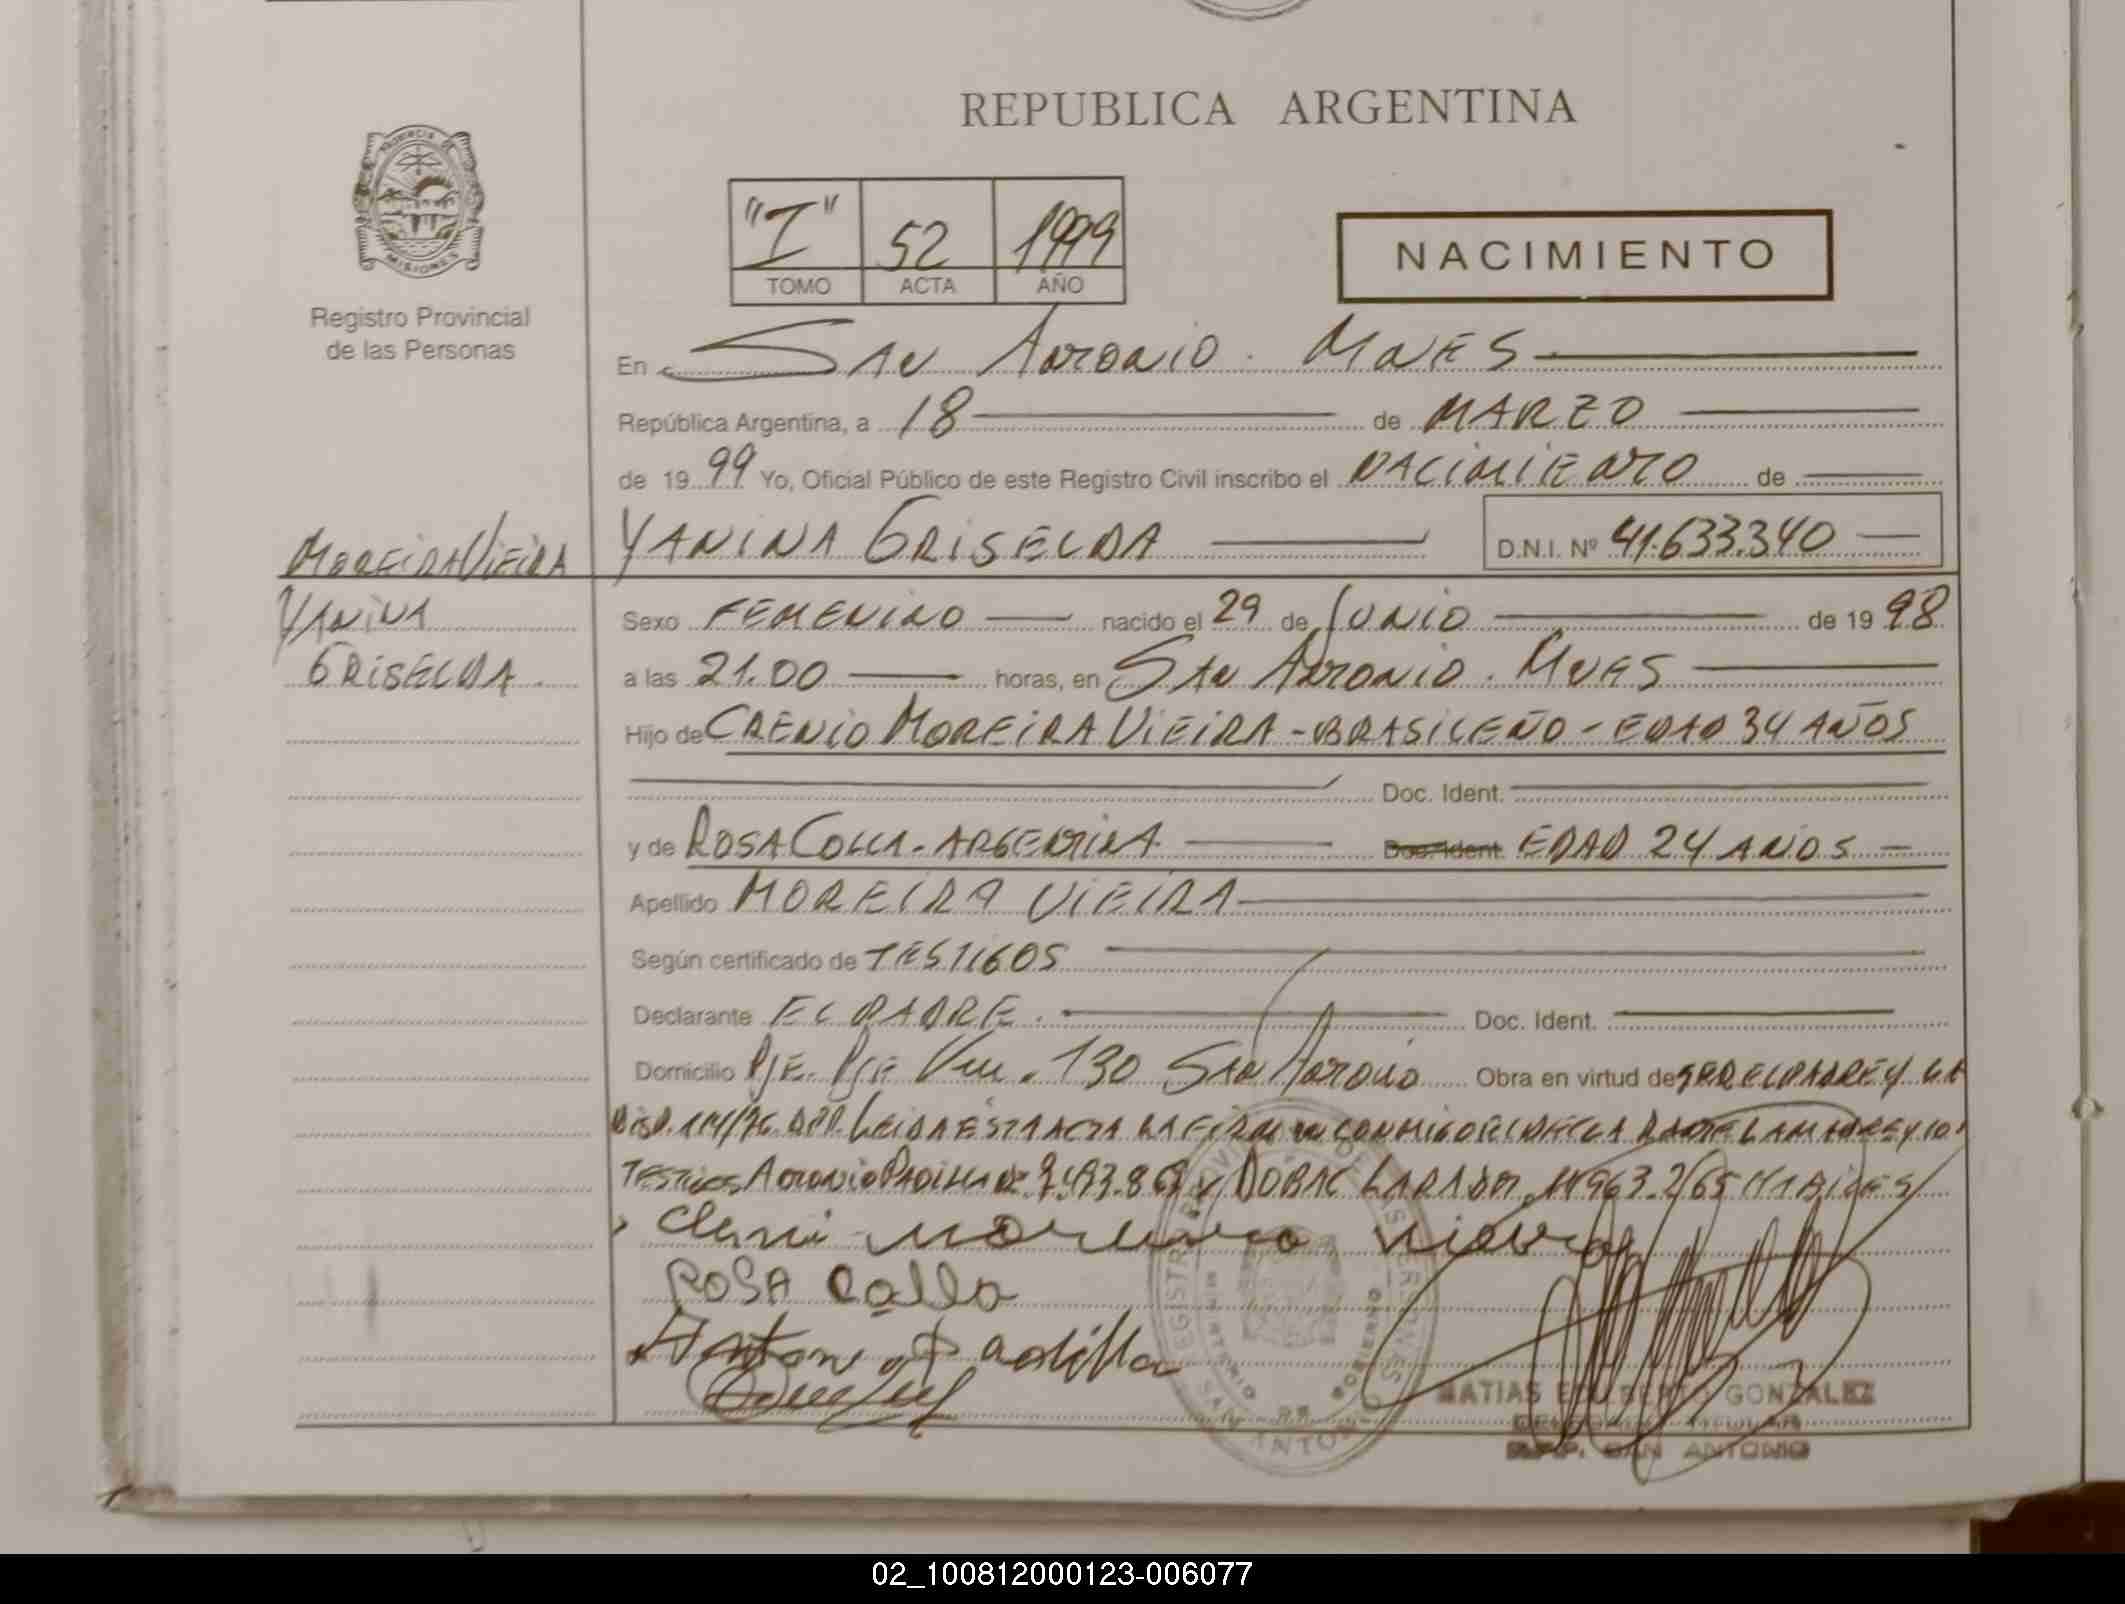 REPUBLICA ARGENTINA
PROVINCIA DE MISIONES
Registro Provincial
de las Personas
"I" 52 1999
TOMO ACTA AÑO
NACIMIENTO
En San Antonio. Mnes
República Argentina, a 18 de MARZO
de 1999 Yo, Oficial Público de este Registro Civil inscribo el NACIMIENTO de
YANINA GRISELDA D.N.I. Nº 41.633.340
MOREIRA VIEIRA
YANINA
GRISELDA
Sexo FEMENINO nacido el 29 de JUNIO de 1998
a las 21.00 horas, en San Antonio. Mnes
Hijo de CRENIO MOREIRA VIEIRA - BRASILEÑO - EDAD 34 AÑOS
Doc. Ident.
y de ROSA COLLA - ARGENTINA Doc. Ident. EDAD 24 AÑOS
Apellido MOREIRA VIEIRA
Según certificado de TESTIGOS
Declarante EL PADRE. Doc. Ident.
Domicilio 130 San Antonio Obra en virtud de SER EL PADRE Y LA
LEIDA ESTA ACTA LA MADRE Y LOS
TESTIGOS ANTONIO
ROSA Colla
Antonio Padilla
REGISTRO PROVINCIAL DE LAS PERSONAS
MINISTERIO DE GOBIERNO
SAN ANTONIO
MATIAS EDILBERTO GONZALEZ
DELEGADO TITULAR
R.P.P. SAN ANTONIO
02_100812000123-006077